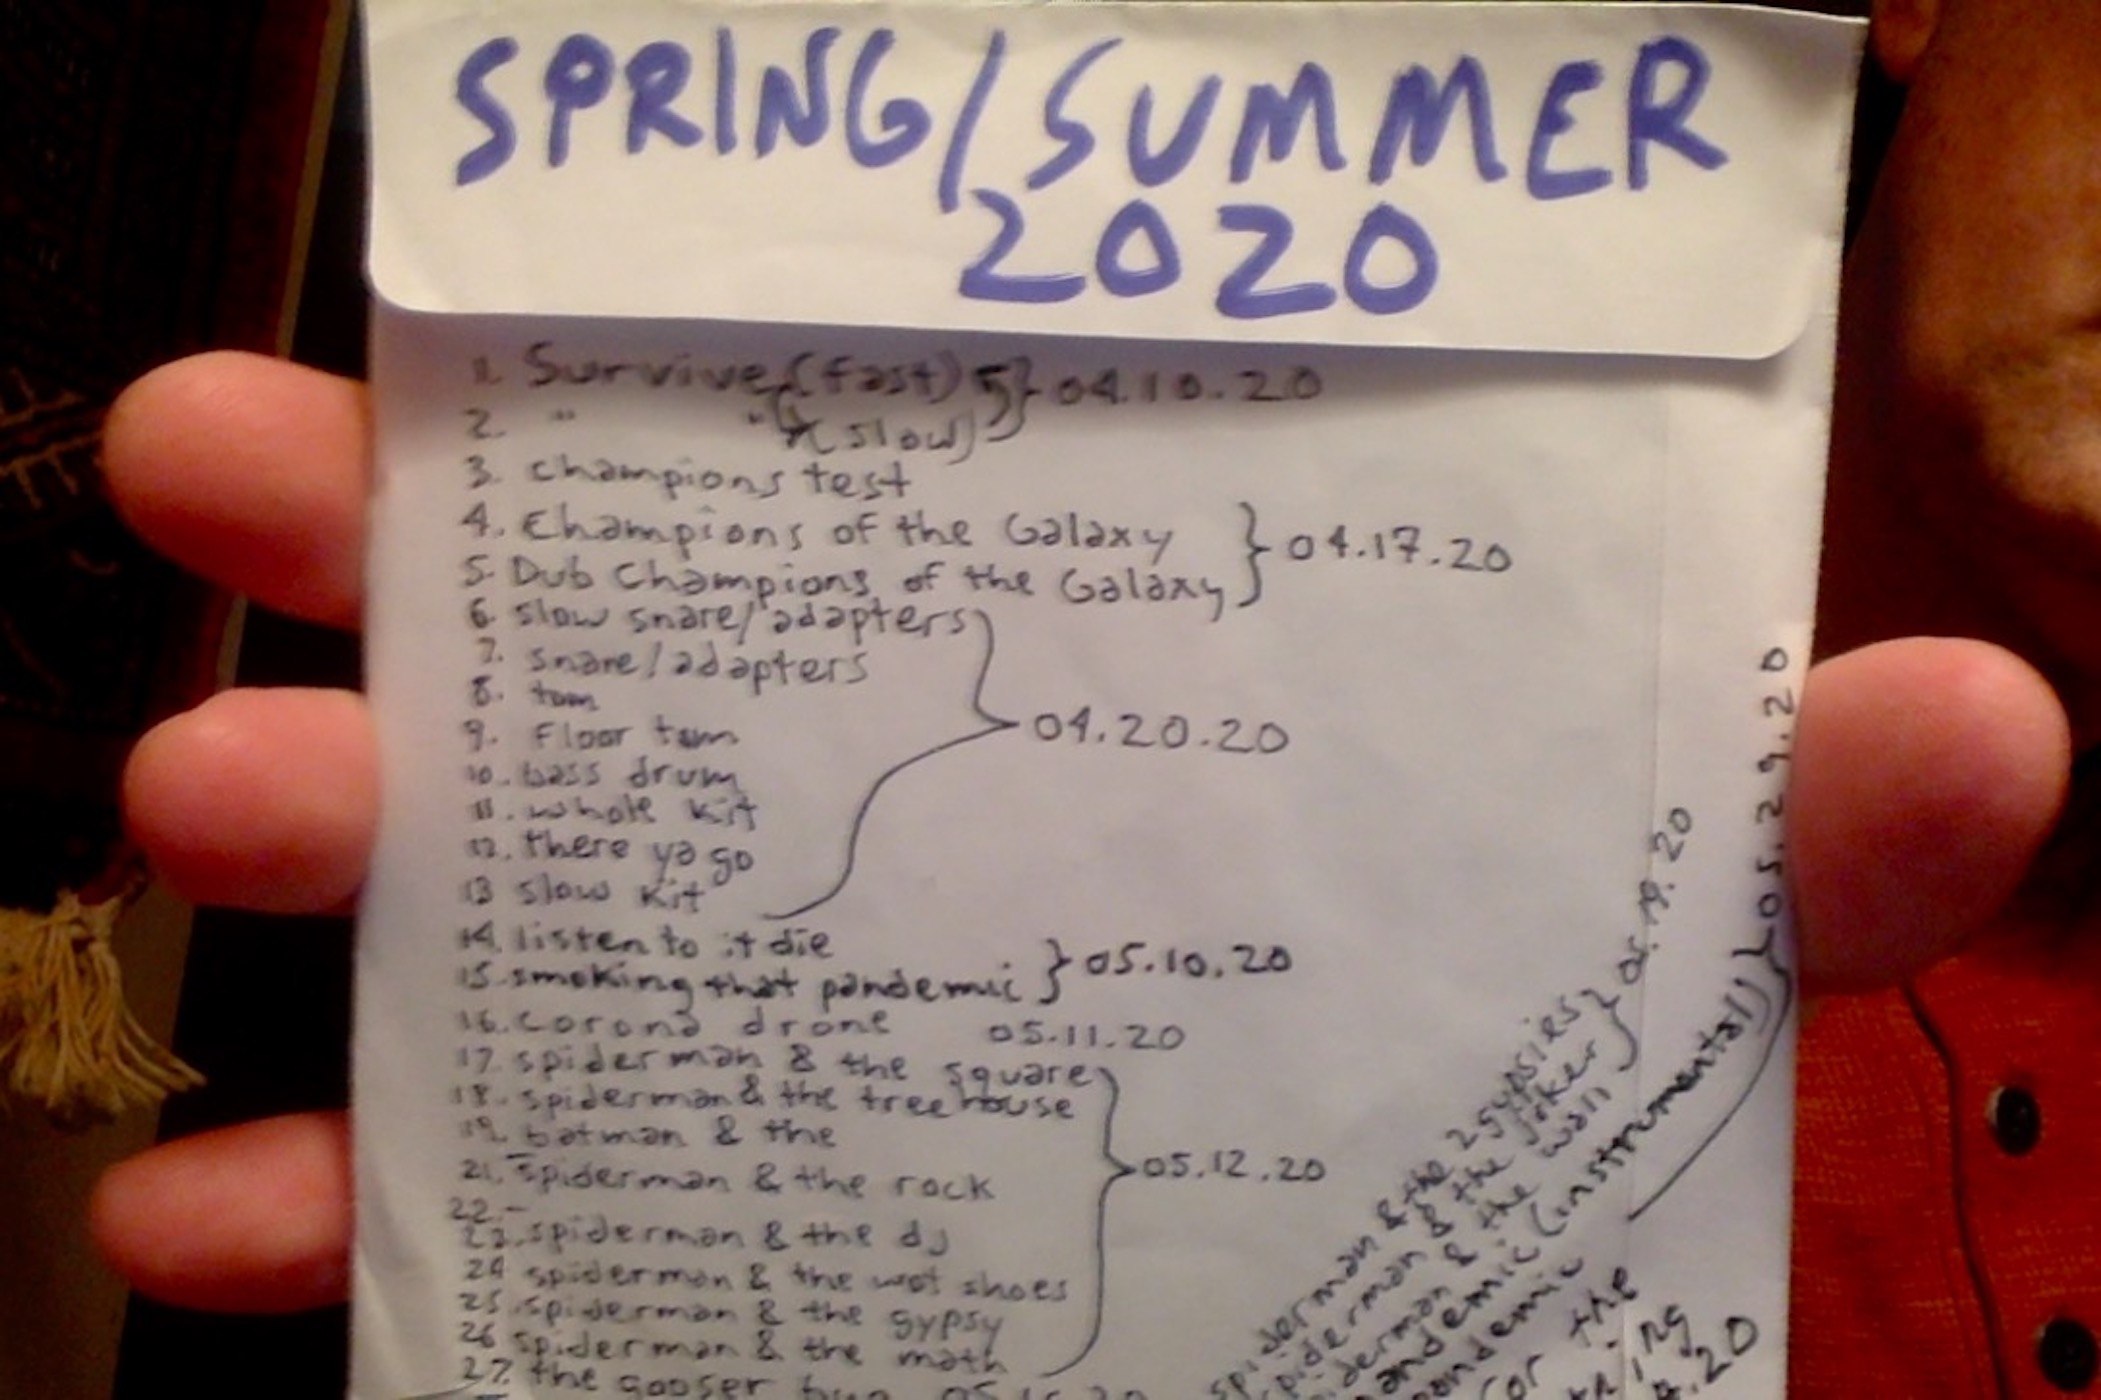 SPRING/SUMMER
2020
1. Survive (fast) } 04.10.20
2. " " (slow)
3. champions test
4. Champions of the Galaxy } 04.17.20
5. Dub Champions of the Galaxy
6. slow snare/adapters
7. snare/adapters
8. tom
9. Floor tom } 04.20.20
10. bass drum
11. whole kit
12. there ya go
13 slow kit
14. listen to it die } 05.10.20
15. smoking that pandemic
16. corona drone 05.11.20
17. spiderman & the square
18. spiderman & the treehouse
19. batman & the
21. spiderman & the rock } 05.12.20
22. -
23. spiderman & the dj
24 spiderman & the wet shoes
25. spiderman & the gypsy
26 spiderman & the math
27. the gooser
spiderman & the 2 gypsies } 05.19.20
spiderman & the joker
spiderman & the wall
pandemic (instrumental) } 05.29.20
pandemic
for the